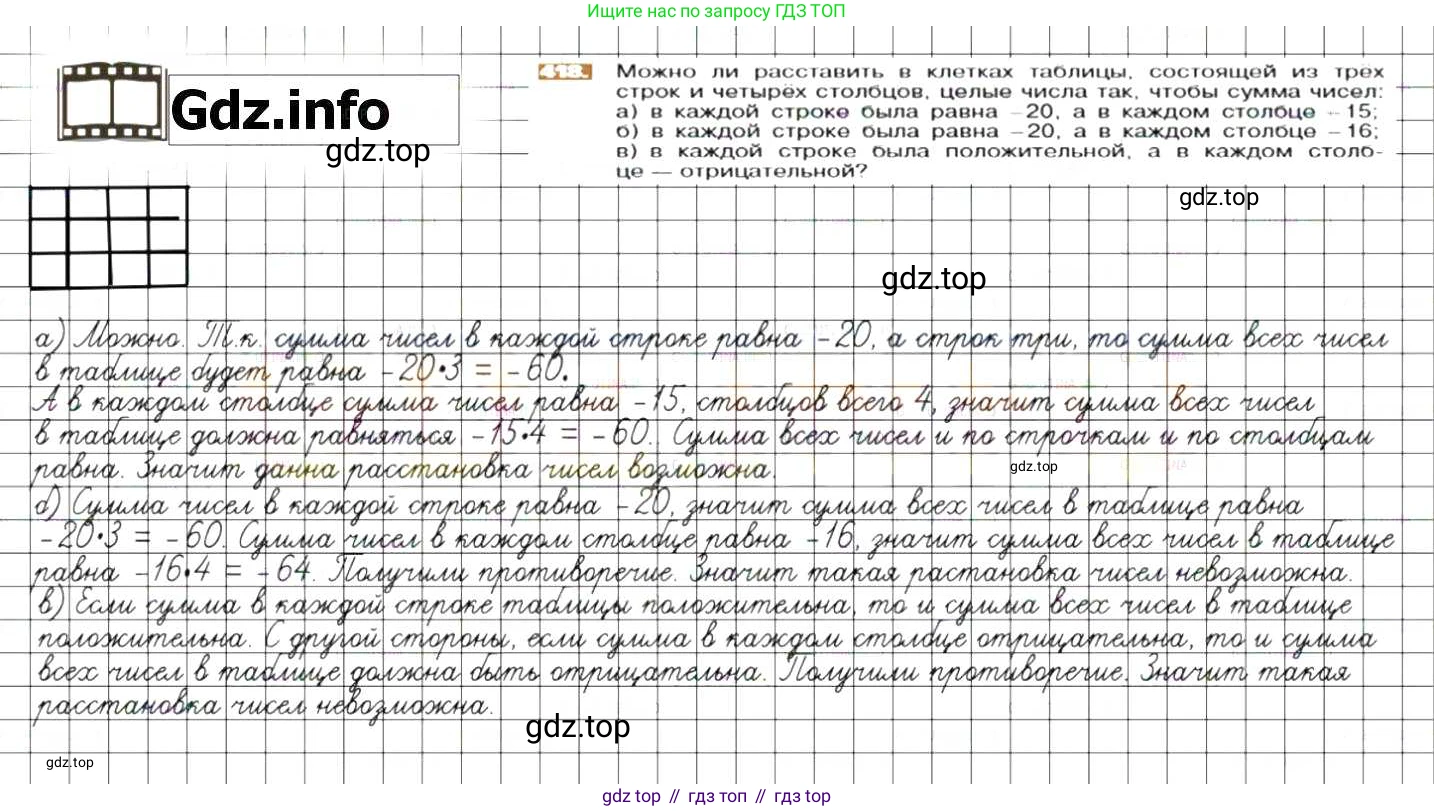 Ищите нас по запросу ГДЗ ТОП
Gdz.info
gdz.top
418. Можно ли расставить в клетках таблицы, состоящей из трёх
строк и четырёх столбцов, целые числа так, чтобы сумма чисел:
а) в каждой строке была равна −20, а в каждом столбце −15;
б) в каждой строке была равна −20, а в каждом столбце −16;
в) в каждой строке была положительной, а в каждом столб-
це — отрицательной?
gdz.top
gdz.top
а) Можно. Т.к. сумма чисел в каждой строке равна −20, а строк три, то сумма всех чисел
в таблице будет равна −20·3 = −60.
А в каждом столбце сумма чисел равна −15, столбцов всего 4, значит сумма всех чисел
в таблице должна равняться −15·4 = −60. Сумма всех чисел и по строчкам и по столбцам
равна. Значит данна расстановка чисел возможна.
gdz.top
б) Сумма чисел в каждой строке равна −20, значит сумма всех чисел в таблице равна
−20·3 = −60. Сумма чисел в каждом столбце равна −16, значит сумма всех чисел в таблице
равна −16·4 = −64. Получили противоречие. Значит такая растановка чисел невозможна.
в) Если сумма в каждой строке таблицы положительна, то и сумма всех чисел в таблице
положительна. С другой стороны, если сумма в каждом столбце отрицательна, то и сумма
всех чисел в таблице должна быть отрицательна. Получили противоречие. Значит такая
расстановка чисел невозможна.
gdz.top
gdz.top
gdz top // гдз топ // гдз top